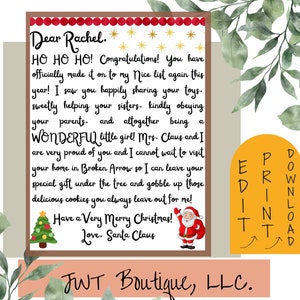 Dear Rachel,
HO HO HO! Congratulations! You have
officially made it on to my Nice list again this
year! I saw you happily sharing your toys,
sweetly helping your sisters, kindly obeying
your parents, and altogether being a
WONDERFUL little girl! Mrs. Claus and I
are very proud of you and I cannot wait to visit
your home in Broken Arrow so I can leave your
special gift under the tree and gobble up those
delicious cookies you always leave out for me!
Have a Very Merry Christmas!
Love, Santa Claus
EDIT
PRINT
DOWNLOAD
JWT Boutique, LLC.